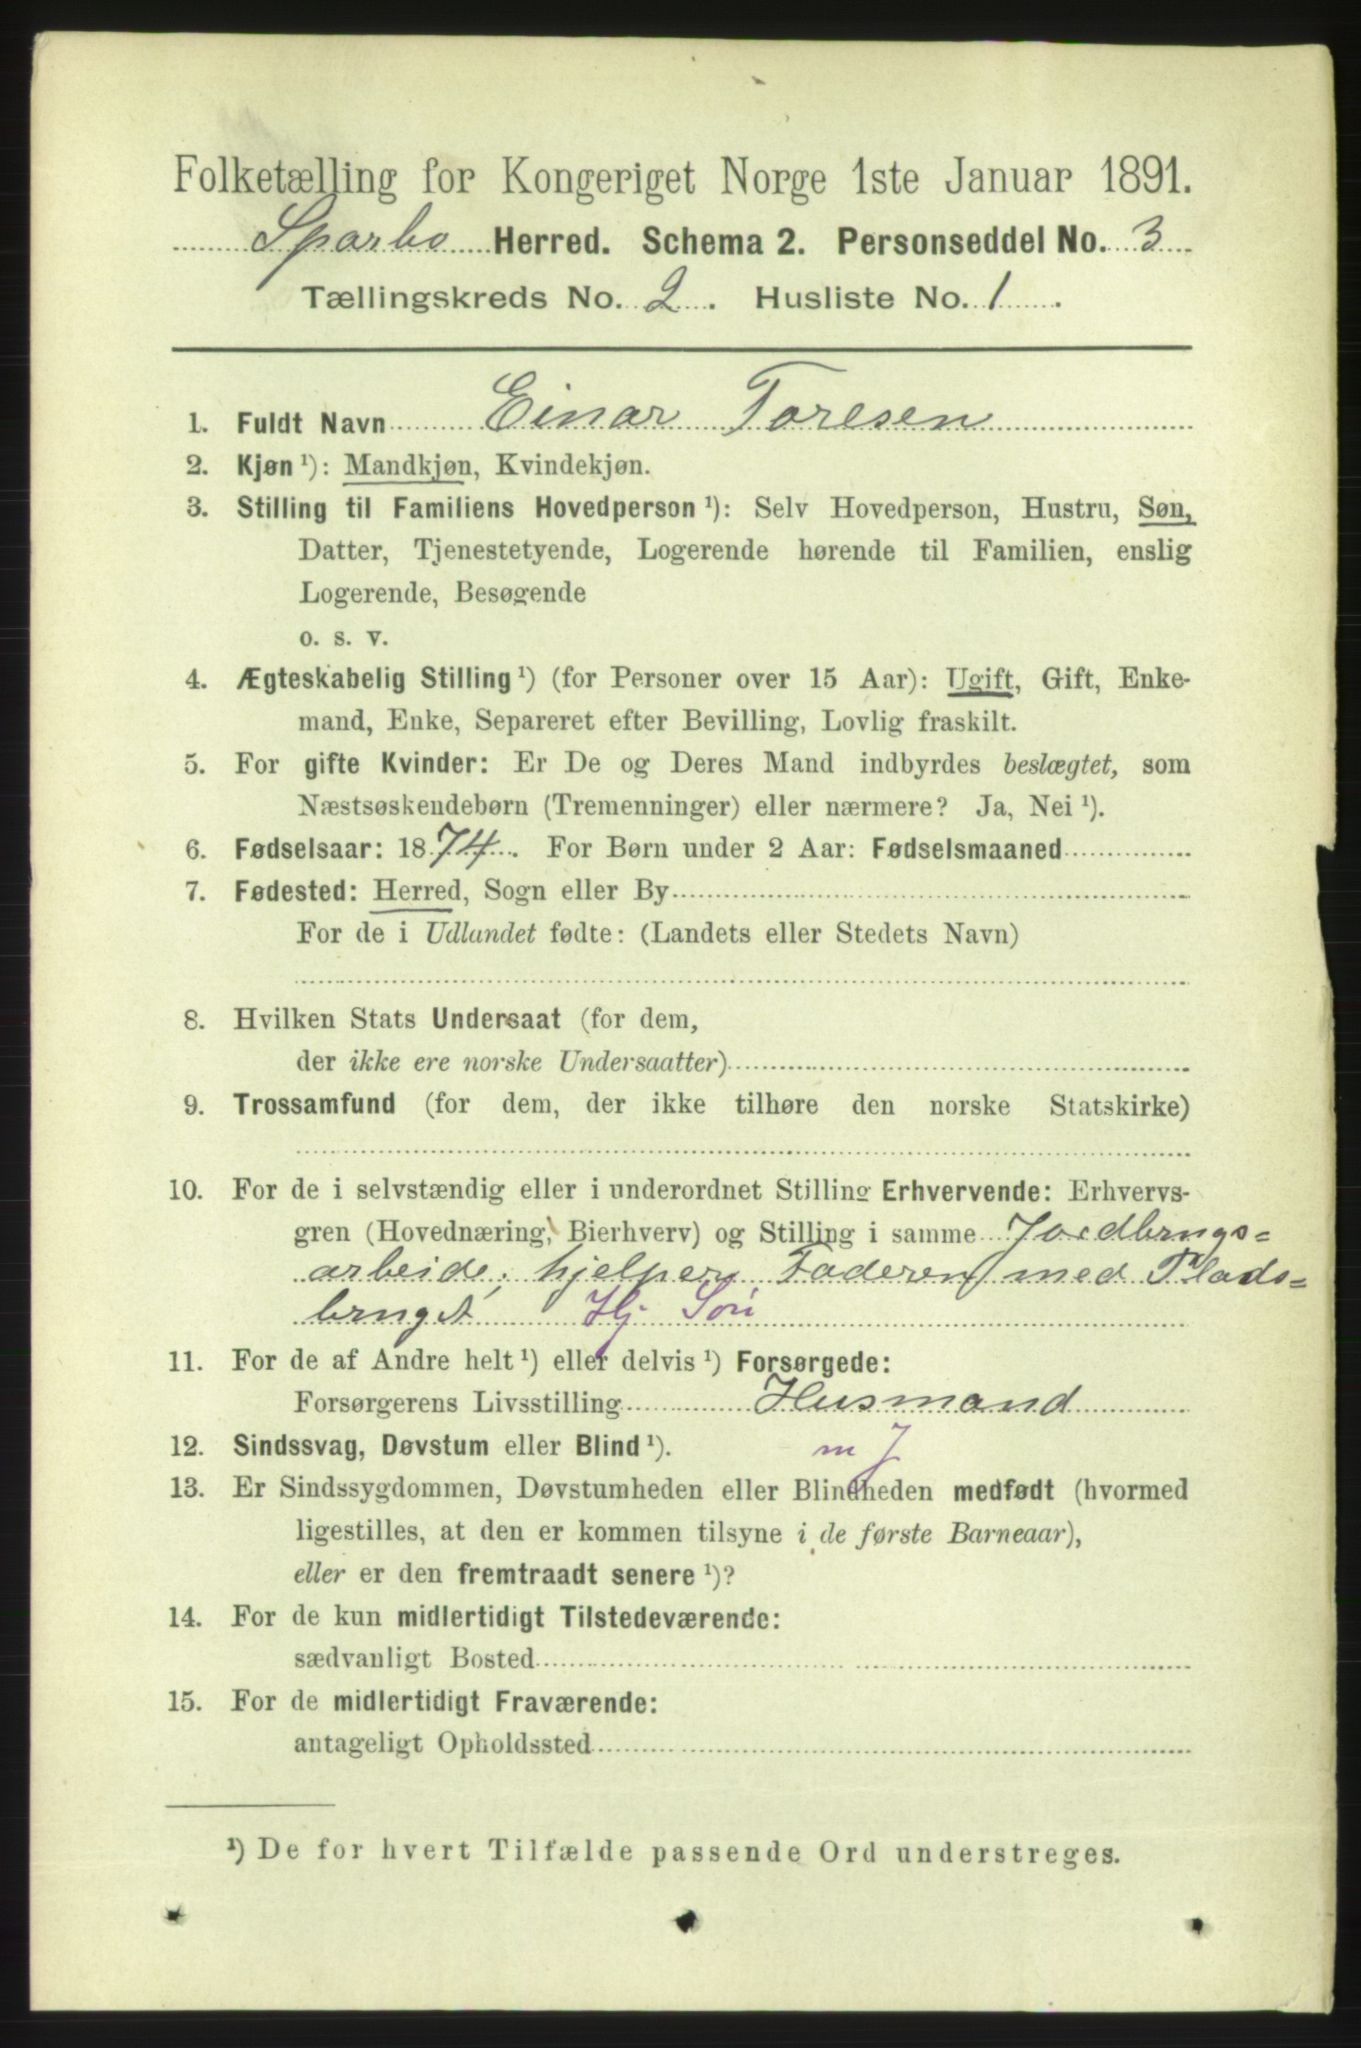 Folketælling for Kongeriget Norge 1ste Januar 1891.
Sparbo Herred. Schema 2. Personseddel No. 3
Tællingskreds No. 2. Husliste No. 1.
1. Fuldt Navn Einar Toresen
2. Kjøn ¹): Mandkjøn, Kvindekjøn.
3. Stilling til Familiens Hovedperson ¹): Selv Hovedperson, Hustru, Søn,
Datter, Tjenestetyende, Logerende hørende til Familien, enslig
Logerende, Besøgende
o. s. v.
4. Ægteskabelig Stilling ¹) (for Personer over 15 Aar): Ugift, Gift, Enke-
mand, Enke, Separeret efter Bevilling, Lovlig fraskilt.
5. For gifte Kvinder: Er De og Deres Mand indbyrdes beslægtet, som
Næstsøskendebørn (Tremenninger) eller nærmere? Ja, Nei ¹).
6. Fødselsaar: 1874. For Børn under 2 Aar: Fødselsmaaned
7. Fødested: Herred, Sogn eller By
For de i Udlandet fødte: (Landets eller Stedets Navn)
8. Hvilken Stats Undersaat (for dem,
der ikke ere norske Undersaatter)
9. Trossamfund (for dem, der ikke tilhøre den norske Statskirke)
10. For de i selvstændig eller i underordnet Stilling Erhvervende: Erhvervs-
gren (Hovednæring, Bierhverv) og Stilling i samme Jordbrugs=
arbeide; hjelper Faderen med Plads=
bruget Hj Søn
11. For de af Andre helt ¹) eller delvis ¹) Forsørgede:
Forsørgerens Livsstilling Husmand
12. Sindssvag, Døvstum eller Blind ¹). m J
13. Er Sindssygdommen, Døvstumheden eller Blindheden medfødt (hvormed
ligestilles, at den er kommen tilsyne i de første Barneaar),
eller er den fremtraadt senere ¹)?
14. For de kun midlertidigt Tilstedeværende:
sædvanligt Bosted
15. For de midlertidigt Fraværende:
antageligt Opholdssted
¹) De for hvert Tilfælde passende Ord understreges.